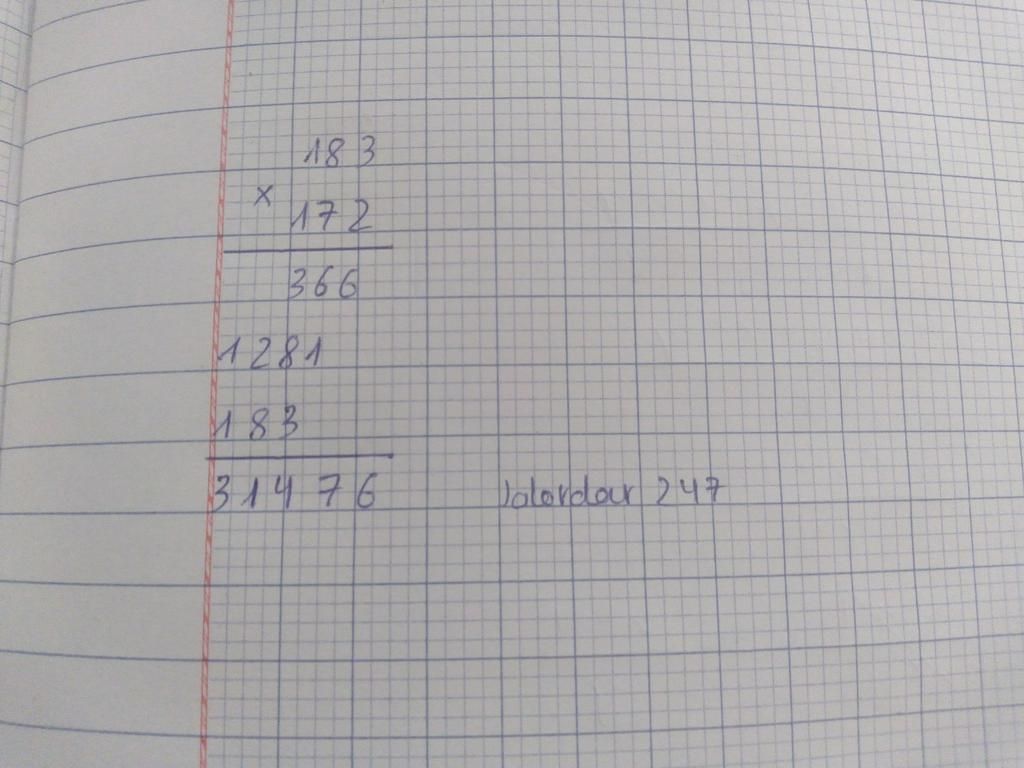 183
x 172
366
1281
183
31476 Jalordar 247